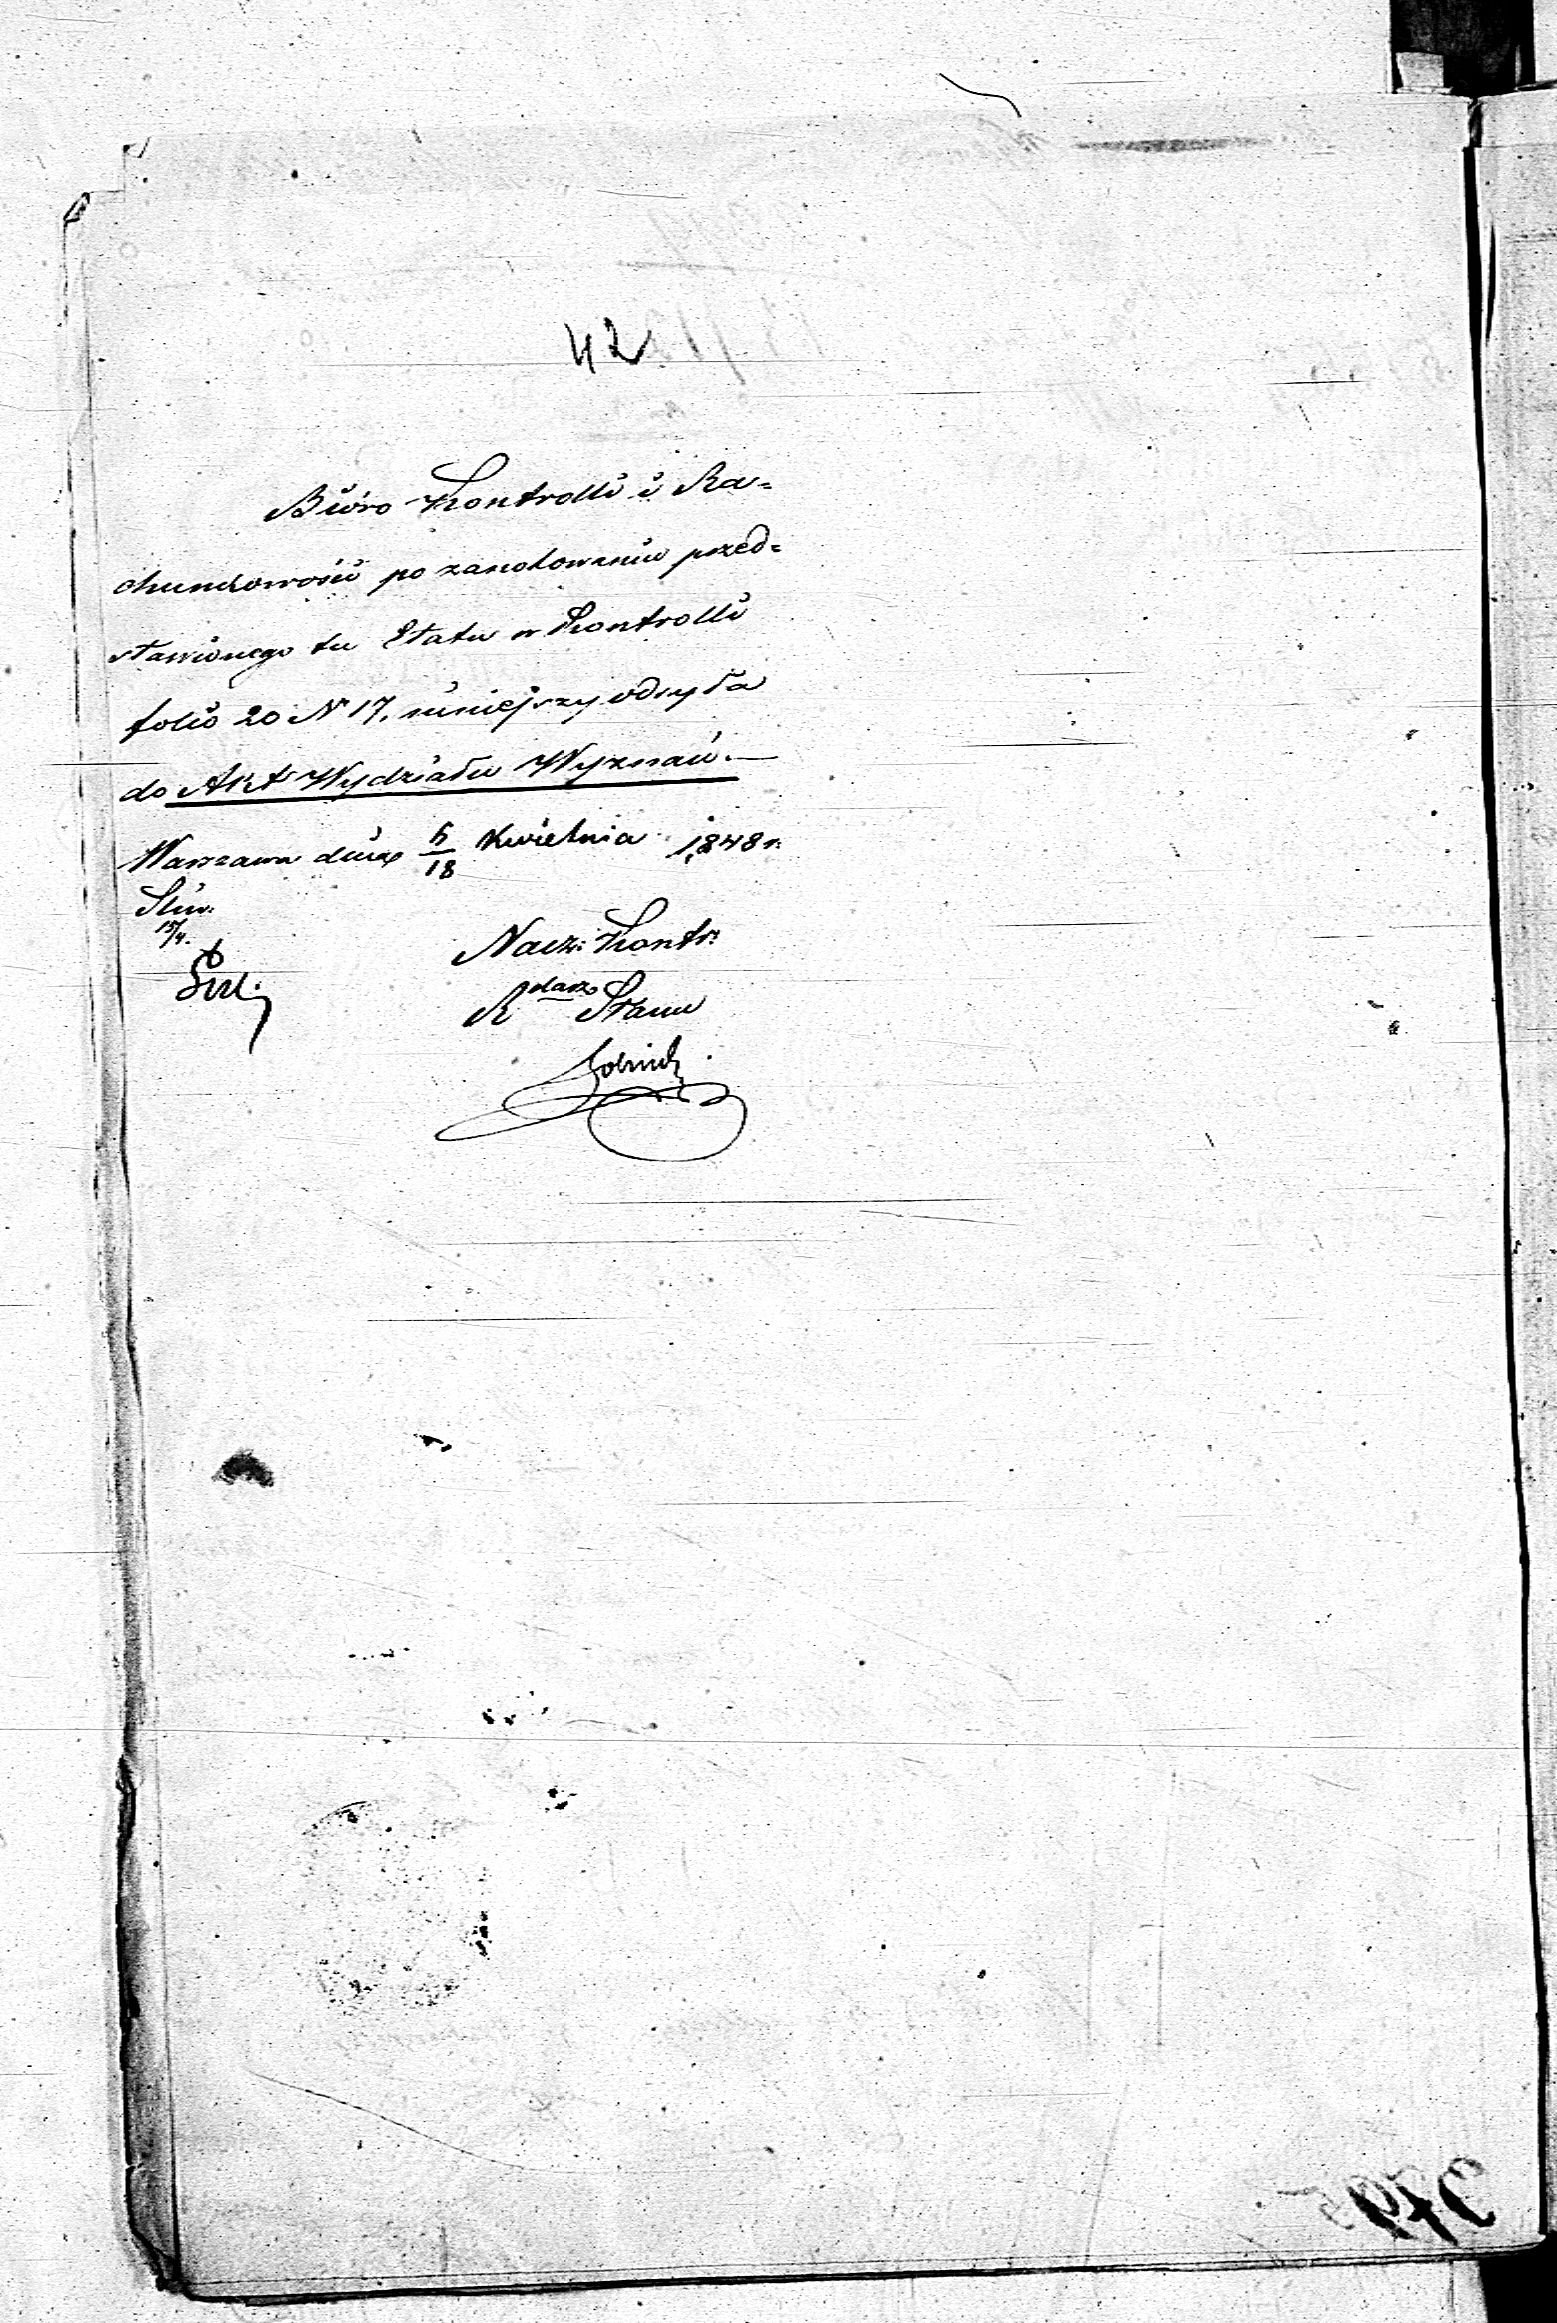 42
Biuro Kontrolli i Ra=
chunkowości po zanotowaniu przed=
stawionego tu Etatu w Kontrolli
folio 20 N 17, niniejszy odsyła
do Akt Wydziału Wyznań.—
Warszawa dnia 6/18 Kwietnia 1848 r.
15/4.
Nacz: Kontr:
R Stanu